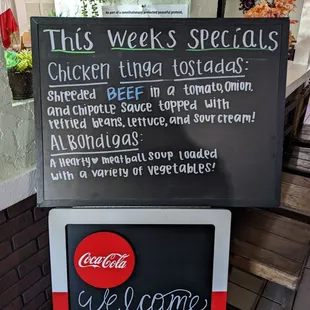 This Weeks Specials
Chicken tinga tostadas:
Shreeded BEEF in a tomato, onion,
and Chipotle sauce topped with
refried beans, lettuce, and sour cream!
ALBONDIGAS:
A Hearty♥ meatball soup loaded
with a variety of vegetables!
Coca-Cola
Welcome